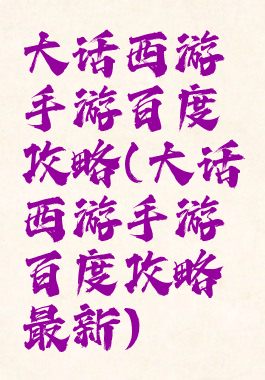 大话西游
手游百度
攻略(大话
西游手游
百度攻略
最新)